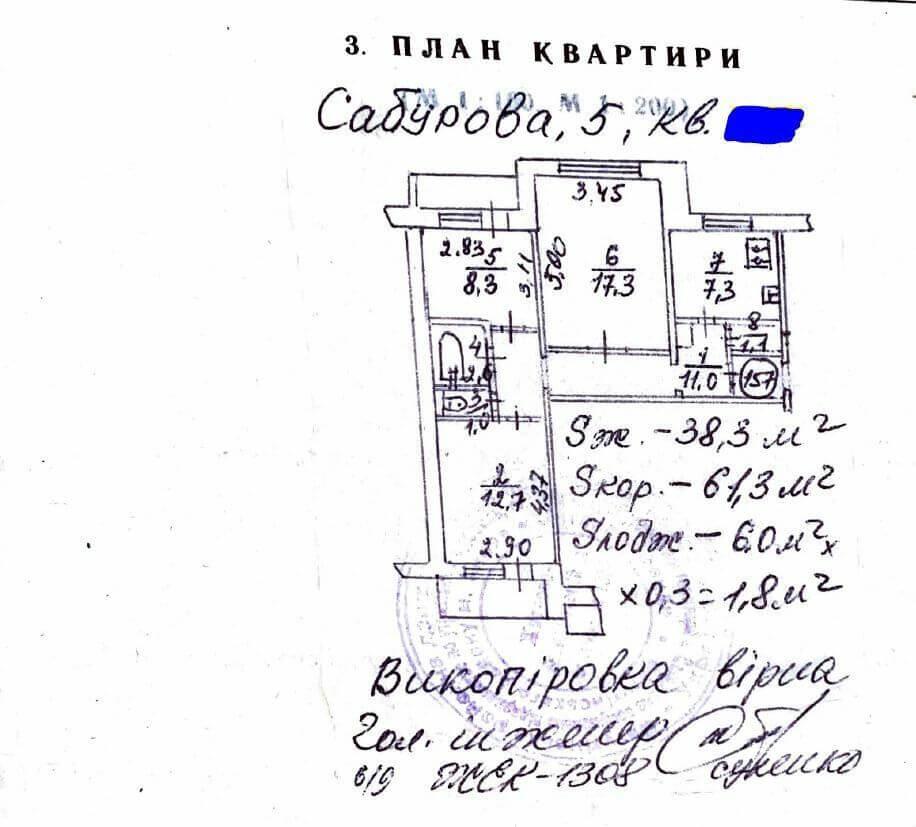 3. ПЛАН КВАРТИРИ
М 1 : 100, М 1 : 200
Сабурова, 5, кв.
3.45
2.83
5
8,3
3.11
5,00
6
17.3
7
7,3
8
1,1
4
2,6
1
11.0
157
3
1,0
Sж. - 38,3 м2
2
12,7
4,37
Sкор. - 61,3 м2
2.90
Sлодж. - 6.0 м2 х
х 0,3 = 1,8 м2
Викопіровка вірна
Гол. інженер
ЖЕК-1308